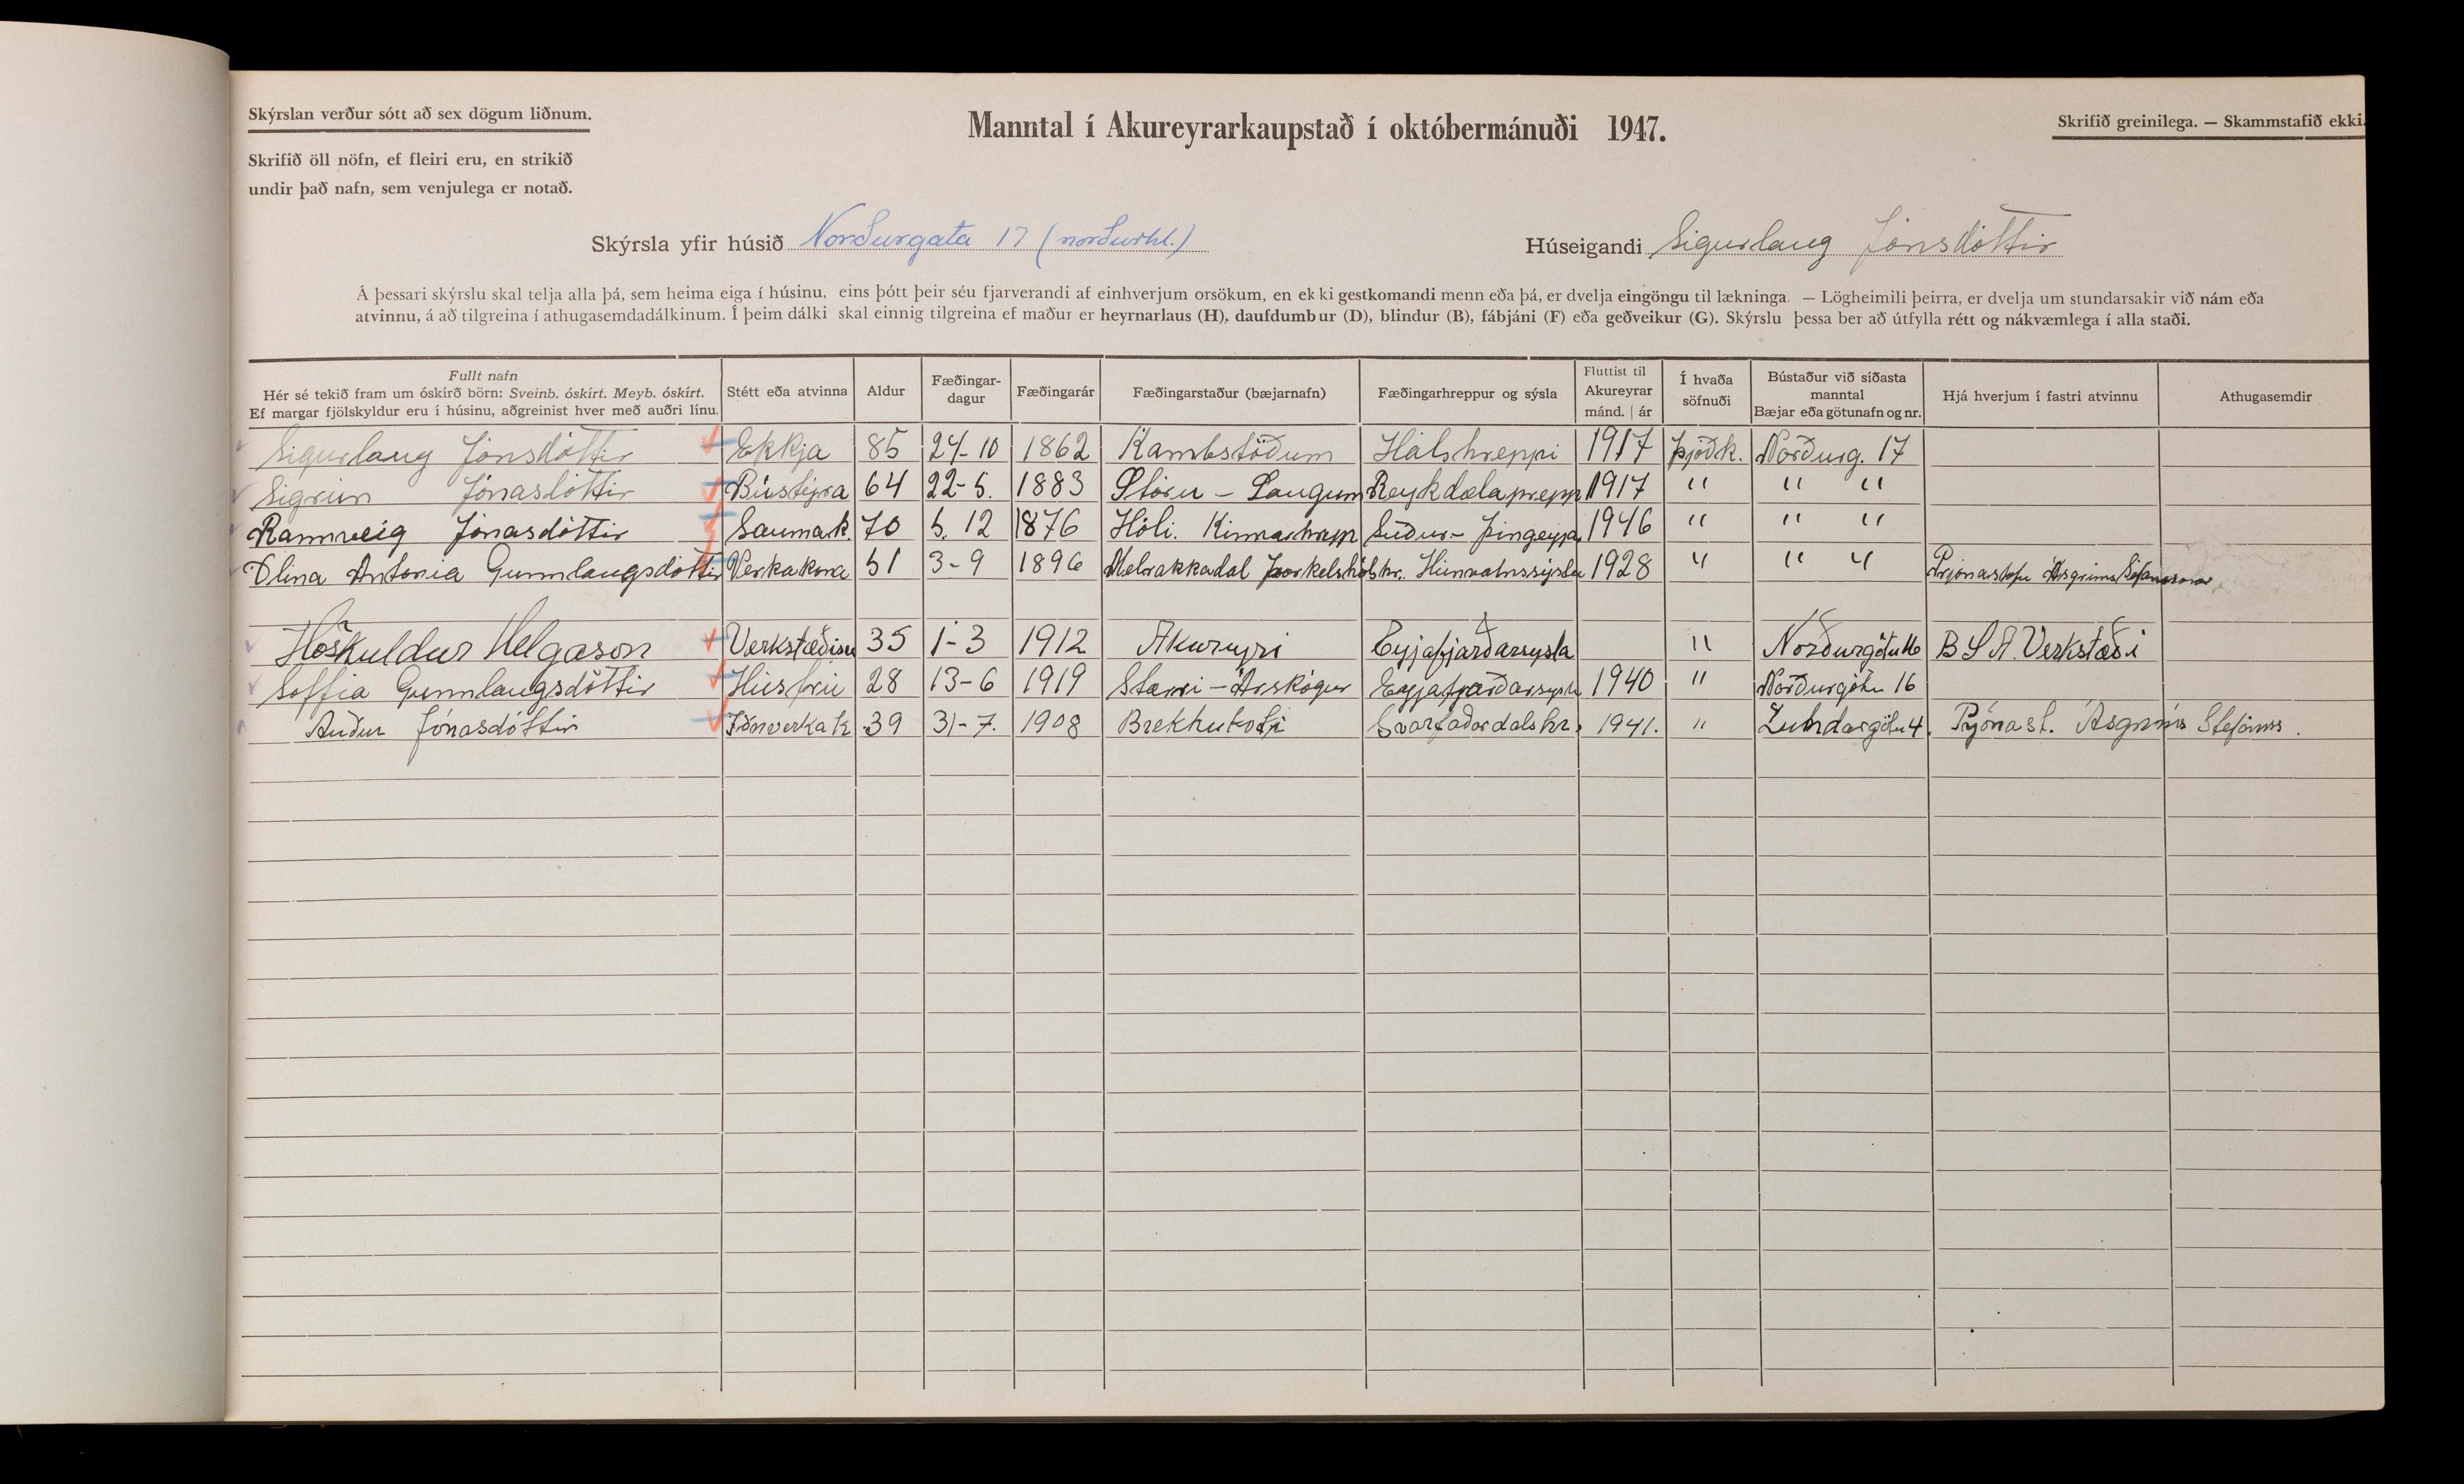 Skýrslan verður sótt að sex dögum liðnum.
Skrifið öll nöfn, ef fleiri eru, en strikið
undir það nafn, sem venjulega er notað.
Manntal í Akureyrarkaupstað í októbermánuði 1947.
Skrifið greinilega. — Skammstafið ekki.
Skýrsla yfir húsið Norðurgata 17 (norðurhl.)
Húseigandi Sigurlaug Jónsdóttir
Á þessari skýrslu skal telja alla þá, sem heima eiga í húsinu, eins þótt þeir séu fjarverandi af einhverjum orsökum, en ekki gestkomandi menn eða þá, er dvelja eingöngu til lækninga. — Lögheimili þeirra, er dvelja um stundarsakir við nám eða
atvinnu, á að tilgreina í athugasemdadálkinum. Í þeim dálki skal einnig tilgreina ef maður er heyrnarlaus (H), daufdumbur (D), blindur (B), fábjáni (F) eða geðveikur (G). Skýrslu þessa ber að útfylla rétt og nákvæmlega í alla staði.
Fullt nafn
Hér sé tekið fram um óskírð börn: Sveinb. óskírt. Meyb. óskírt.
Ef margar fjölskyldur eru í húsinu, aðgreinist hver með auðri línu.
Stétt eða atvinna
Aldur
Fæðingar-
dagur
Fæðingarár
Fæðingarstaður (bæjarnafn)
Fæðingarhreppur og sýsla
Fluttist til
Akureyrar
mánd. | ár
Í hvaða
söfnuði
Bústaður við síðasta
manntal
Bæjar eða götunafn og nr.
Hjá hverjum í fastri atvinnu
Athugasemdir
Sigurlaug Jónsdóttir Ekkja 85 24-10 1862 Kambstöðum Hálshreppi 1917 Þjóðk. Norðurg. 17
Sigrún Jónasdóttir Bústýra 64 22-5. 1883 Stóru-Laugum Reykdælahrepp 1917 " " "
Rannveig Jónasdóttir Saumak. 70 5. 12 1876 Hóli. Kinnarhrepp Suður-Þingeyja 1946 " " "
Ólína Antonía Gunnlaugsdóttir Verkakona 51 3-9 1896 Melrakkadal Þorkelshólshr. Húnvatnssýslu 1928 " " " Prjónastofu Ásgríms Stefánssonar
Höskuldur Helgason Verkstæðisv 35 1-3 1912 Akureyri Eyjafjarðarsýsla " Norðurgötu 16 B S A. Verkstæði
Soffía Gunnlaugsdóttir Húsfrú 28 13-6 1919 Stærri-Árskógur Eyjafjarðarsýslu 1940 " Norðurgötu 16
Auður Jónasdóttir Iðnverkak 39 31-7. 1908 Brekkukoti Svarfaðardalshr. 1941. " Lundargötu 4. Prjónast. Ásgríms Stefánss.